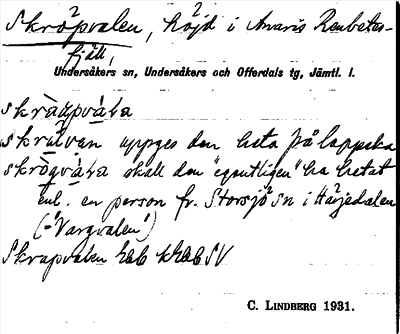 Skröpvalen, höjd i Anaris Renbetes-
fjäll,
Undersåkers sn, Undersåkers och Offerdals tg, Jämtl. l.
skrāæpvāla
skrúlvan uppges den heta på lappska
skrògvāla skall den "egentligen" ha hetat
enl. en person fr. Storsjö sn i Härjedalen
(="Vargvalen")
Skrapvalen
C. LINDBERG 1931.